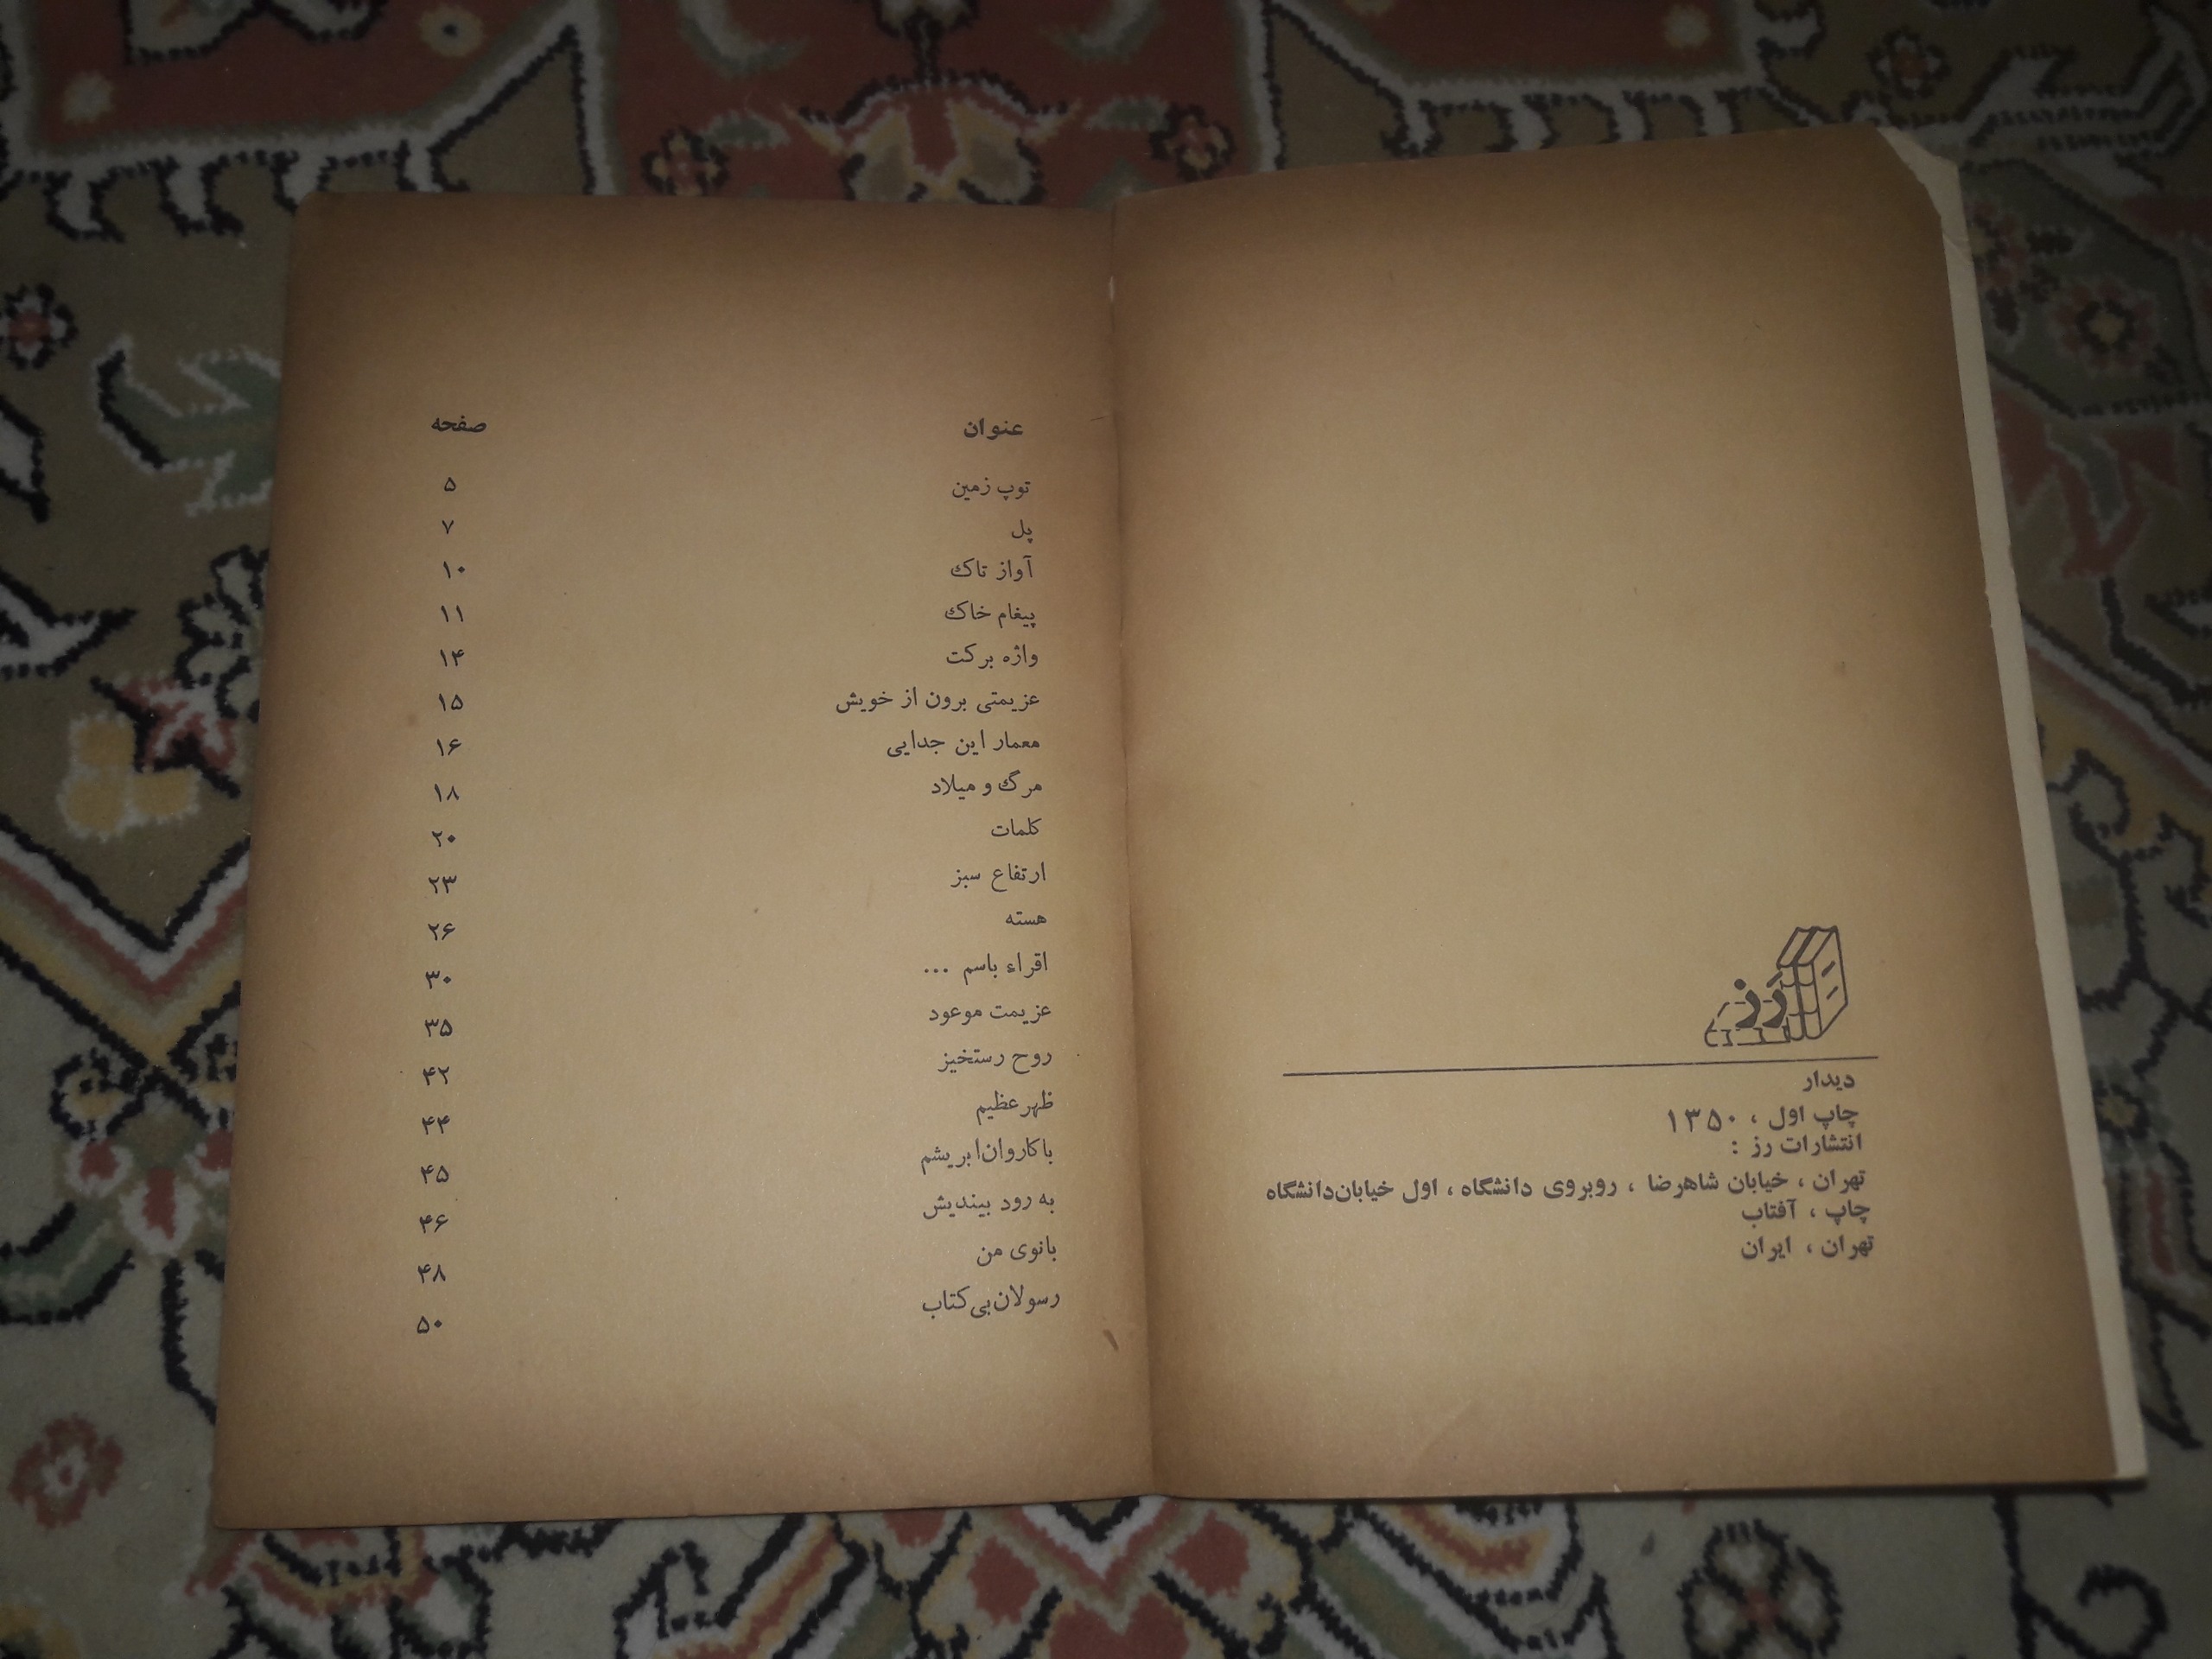 رز
دیدار
چاپ اول ، ۱۳۵۰
انتشارات رز :
تهران ، خیابان شاهرضا ، روبروی دانشگاه ، اول خیابان‌دانشگاه
چاپ ، آفتاب
تهران ، ایران
عنوان صفحه
توپ زمین ۵
پل ۷
آواز تاك ۱۰
پیغام خاك ۱۱
واژه برکت ۱۴
عزیمتی برون از خویش ۱۵
معمار این جدایی ۱۶
مرگ و میلاد ۱۸
کلمات ۲۰
ارتفاع سبز ۲۳
هسته ۲۶
اقراء باسم ... ۳۰
عزیمت موعود ۳۵
روح رستخیز ۴۲
ظهر عظیم ۴۴
با کاروان ابریشم ۴۵
به رود بیندیش ۴۶
بانوی من ۴۸
رسولان بی‌کتاب ۵۰